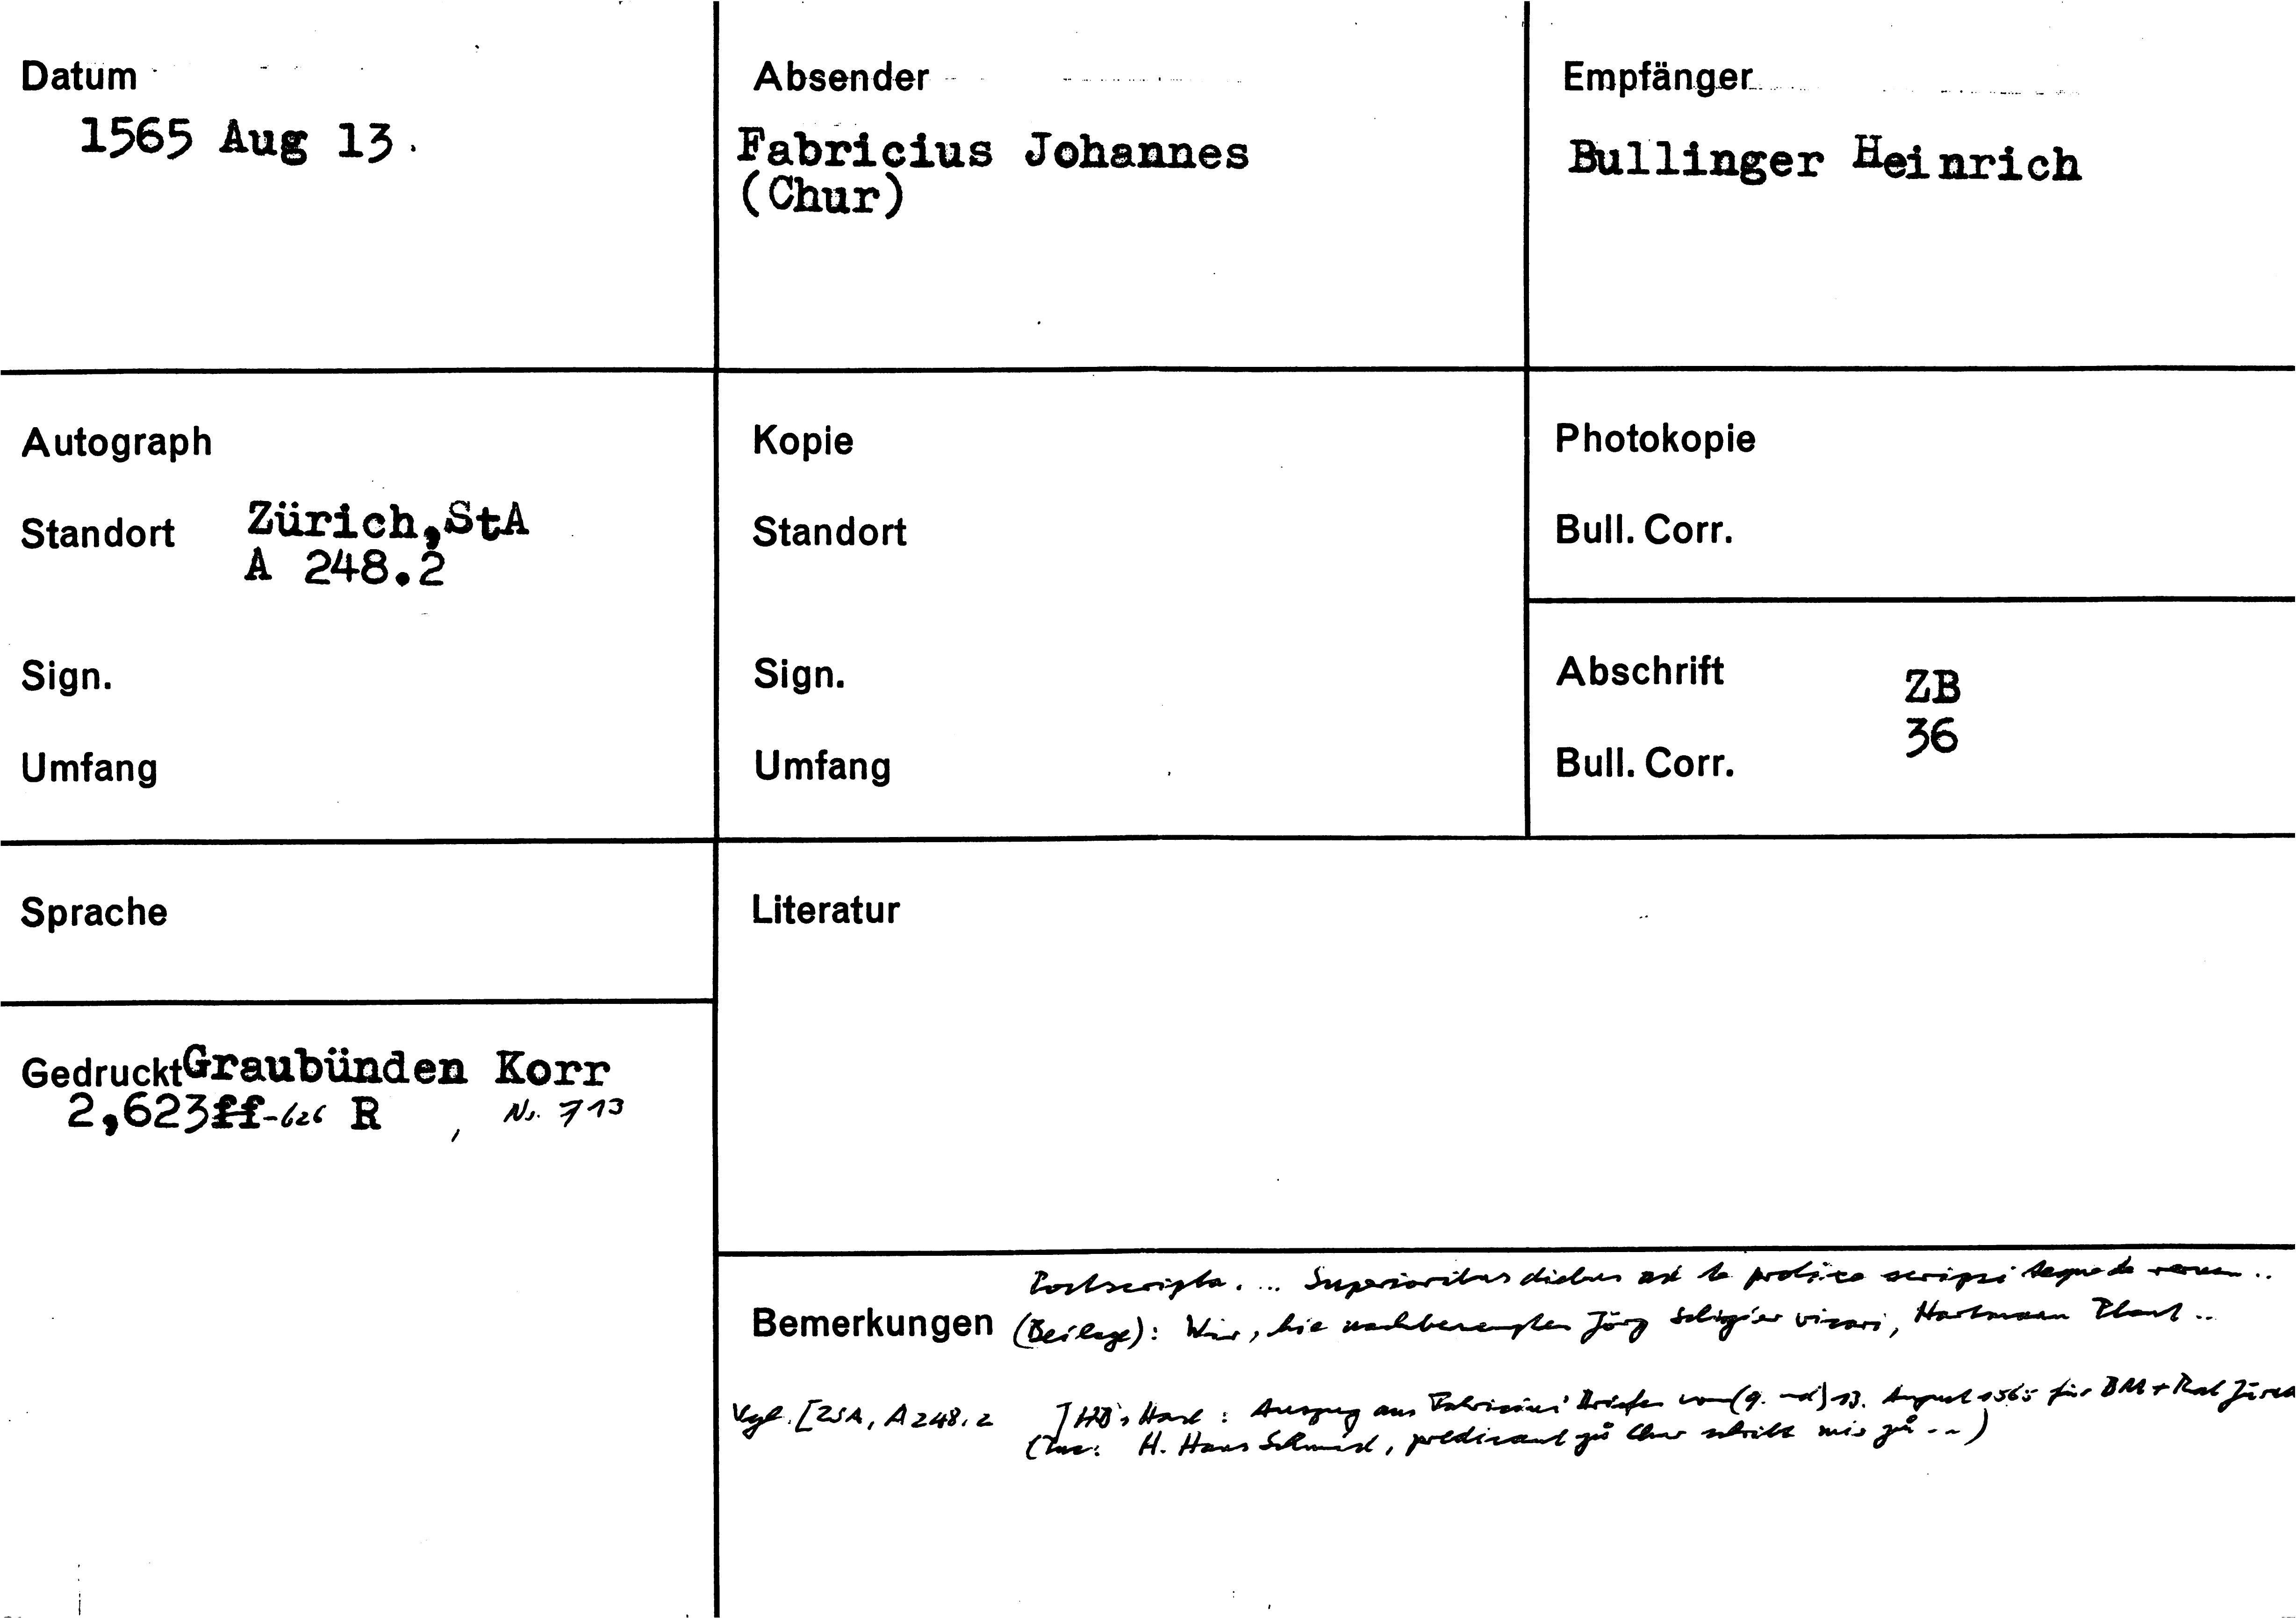 Datum
1565 Aug 13.
Absender
Fabricius Johannes
(Chur)
Empfänger
Bullinger Heinrich
Autograph
Standort Zürich,StA
A 248.2
Sign.
Umfang
Kopie
Standort
Sign.
Umfang
Photokopie
Bull. Corr.
Abschrift ZB
36
Bull. Corr.
Sprache
Gedruckt Graubünden Korr
2,623ff-626 R , Nr. 713
Literatur
Postscripta. ... Superioribus diebus ad te prolixe scripsi
Bemerkungen (Beilage): Wir, hie nachbenempten Jörg vicari, Hartmann Plant ..
Vgl. [ZSA, A 248.2 ] HB's Hand: Auszug aus Fabricius' Briefen vom (9. und) 13. August 1565 für BM + Rat Zürich
(Inc: H. Hans Schmid, predicant zů Chur schribt mir zů ...)